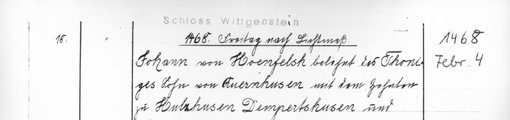 Schloss Wittgenstein
15. 1468. Freitag nach Lichtmeß 1468
Johann von Hoenfelsh belehnt des Thoni- Febr. 4
ges Sohn von Auernhusen mit dem Zehnten
zu Hulzhusen Dempertshusen und